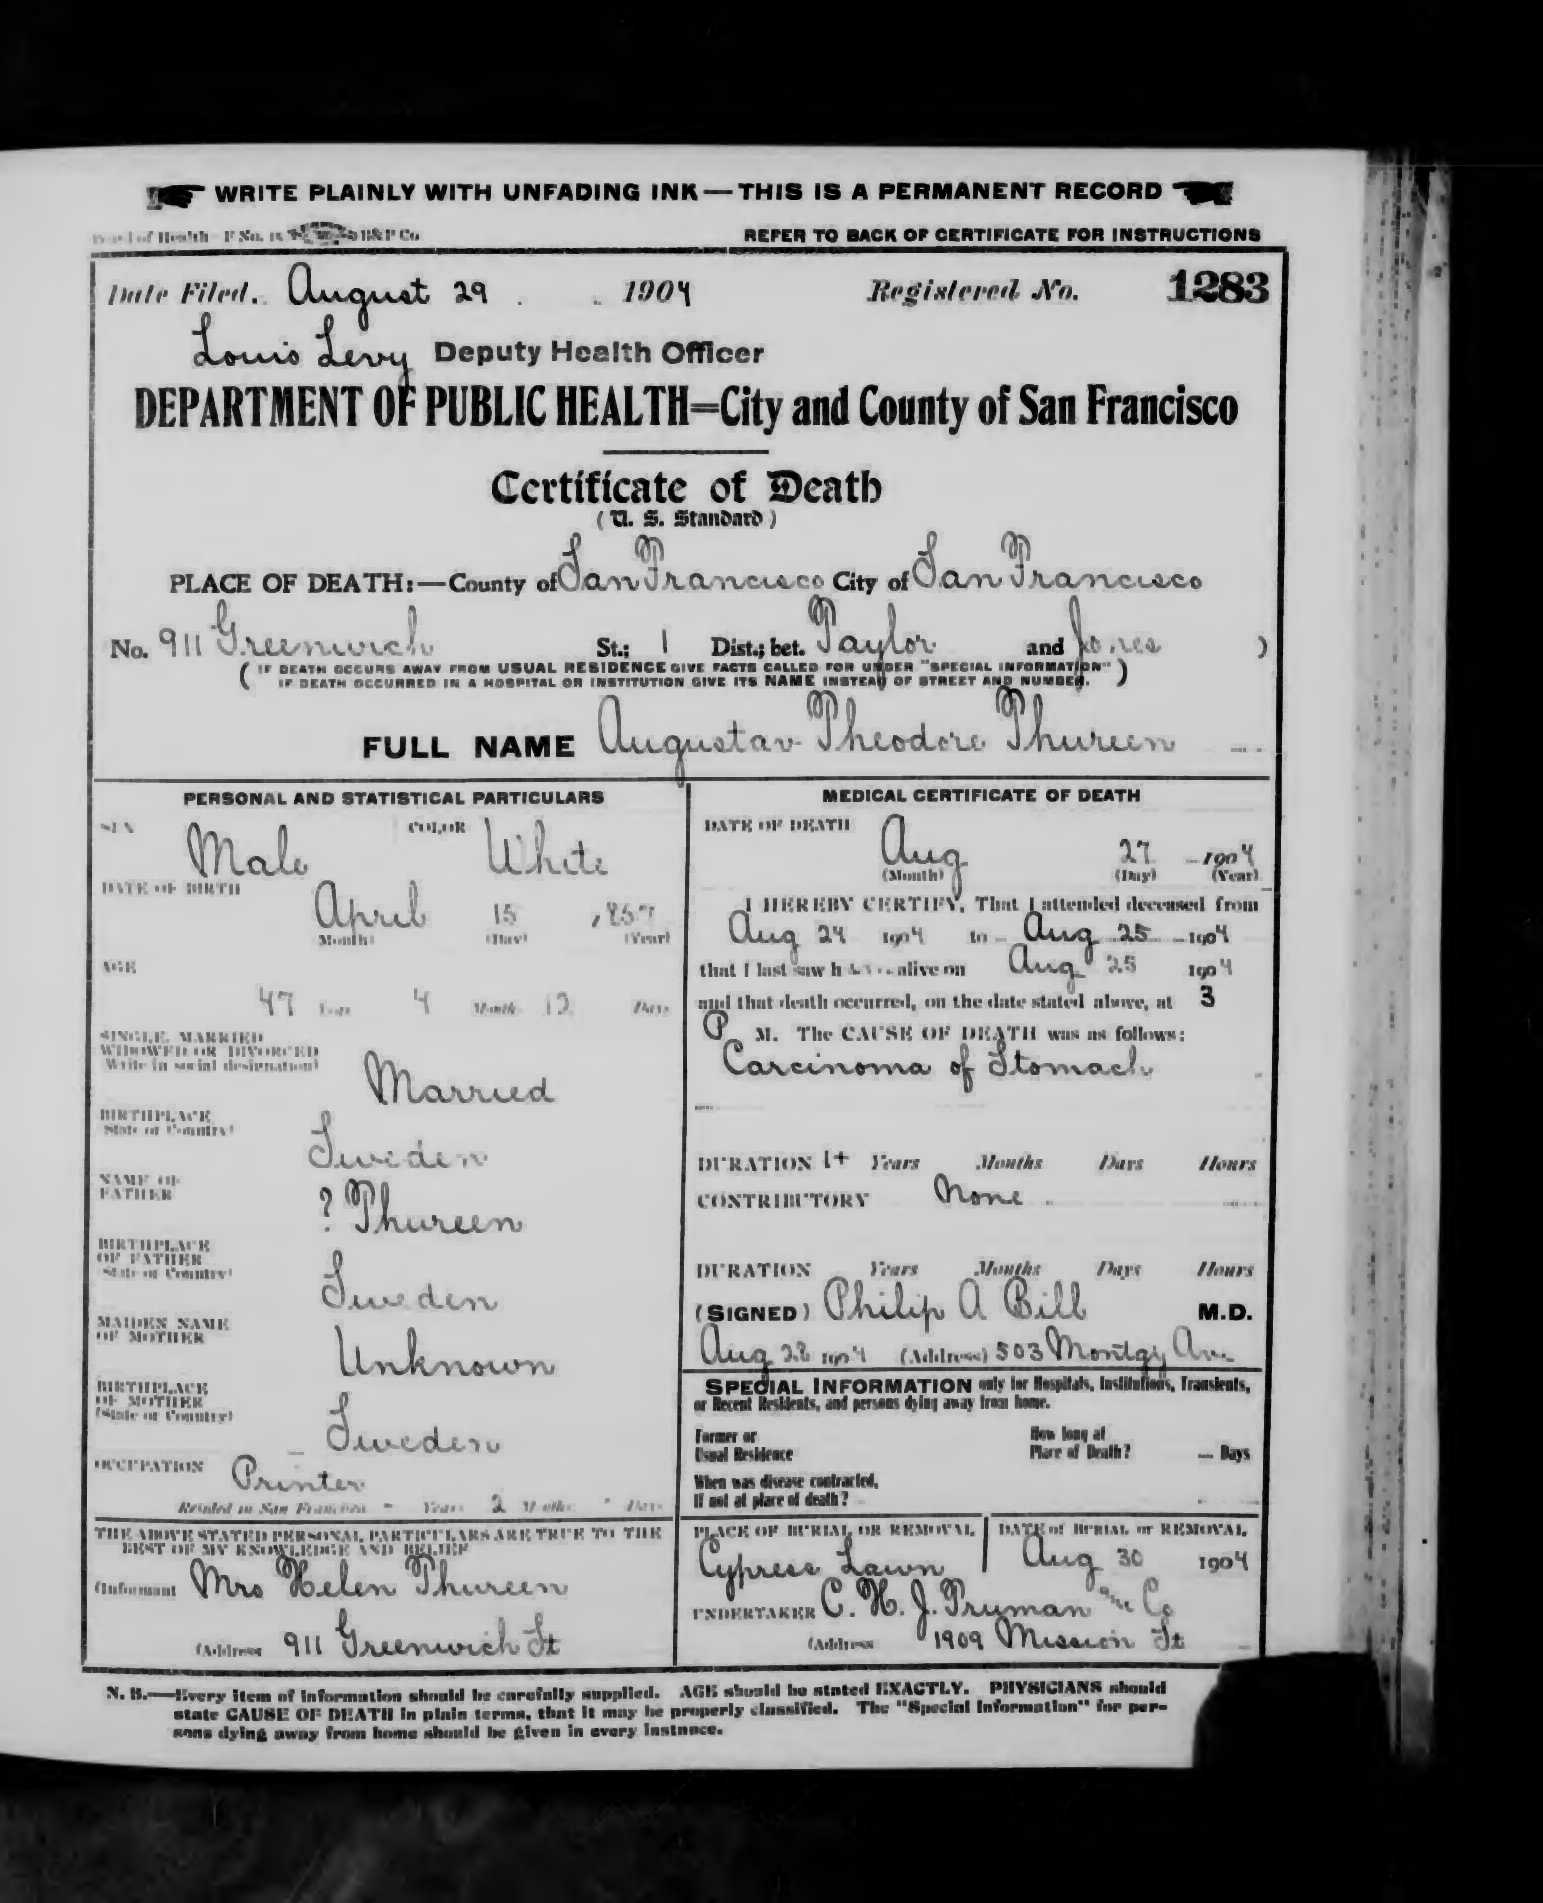 WRITE PLAINLY WITH UNFADING INK — THIS IS A PERMANENT RECORD
Board of Health F No. H&P Co
REFER TO BACK OF CERTIFICATE FOR INSTRUCTIONS
Date Filed. August 29 1904 Registered No. 1283
Louis Levy Deputy Health Officer
DEPARTMENT OF PUBLIC HEALTH=City and County of San Francisco
Certificate of Death
(U. S. Standard)
PLACE OF DEATH:—County of San Francisco City of San Francisco
No. 911 Greenwich St.; 1 Dist.; bet. Taylor and Jones )
( IF DEATH OCCURS AWAY FROM USUAL RESIDENCE GIVE FACTS CALLED FOR UNDER "SPECIAL INFORMATION"
IF DEATH OCCURRED IN A HOSPITAL OR INSTITUTION GIVE ITS NAME INSTEAD OF STREET AND NUMBER. )
FULL NAME Augustav Theodore Thureen
PERSONAL AND STATISTICAL PARTICULARS
SEX Male COLOR White
DATE OF BIRTH
April 15 1857
(Month) (Day) (Year)
AGE
47 Years 4 Months 12 Days
SINGLE, MARRIED
WIDOWED OR DIVORCED
(Write in social designation)
Married
BIRTHPLACE
(State or Country)
Sweden
NAME OF
FATHER
? Thureen
BIRTHPLACE
OF FATHER
(State or Country)
Sweden
MAIDEN NAME
OF MOTHER
Unknown
BIRTHPLACE
OF MOTHER
(State or Country)
Sweden
OCCUPATION Printer
Resided in San Francisco - Years 2 Months - Days
THE ABOVE STATED PERSONAL PARTICULARS ARE TRUE TO THE
BEST OF MY KNOWLEDGE AND BELIEF
(Informant Mrs Helen Thureen
(Address 911 Greenwich St
MEDICAL CERTIFICATE OF DEATH
DATE OF DEATH
Aug 27 1904
(Month) (Day) (Year)
I HEREBY CERTIFY, That I attended deceased from
Aug 24 1904 to Aug 25 1904
that I last saw h alive on Aug 25 1904
and that death occurred, on the date stated above, at 3
P M. The CAUSE OF DEATH was as follows:
Carcinoma of Stomach
DURATION 1+ Years Months Days Hours
CONTRIBUTORY None
DURATION Years Months Days Hours
(SIGNED) Philip A Bill M.D.
Aug 28 1904 (Address) 503 Montgy Ave
SPECIAL INFORMATION only for Hospitals, Institutions, Transients,
or Recent Residents, and persons dying away from home.
Former or
Usual Residence
How long at
Place of Death? Days
When was disease contracted,
If not at place of death?
PLACE OF BURIAL OR REMOVAL
Cypress Lawn
DATE of BURIAL or REMOVAL
Aug 30 1904
UNDERTAKER C. H. J. Truman Co
(Address 1909 Mission St
N. B.—Every item of information should be carefully supplied. AGE should be stated EXACTLY. PHYSICIANS should
state CAUSE OF DEATH in plain terms, that it may be properly classified. The "Special Information" for per-
sons dying away from home should be given in every instance.